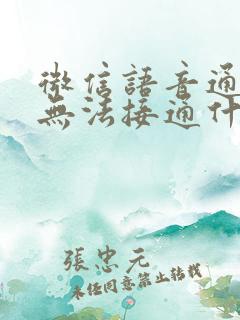 微信語音通
無法接通什
張忠元
未經同意禁止轉載